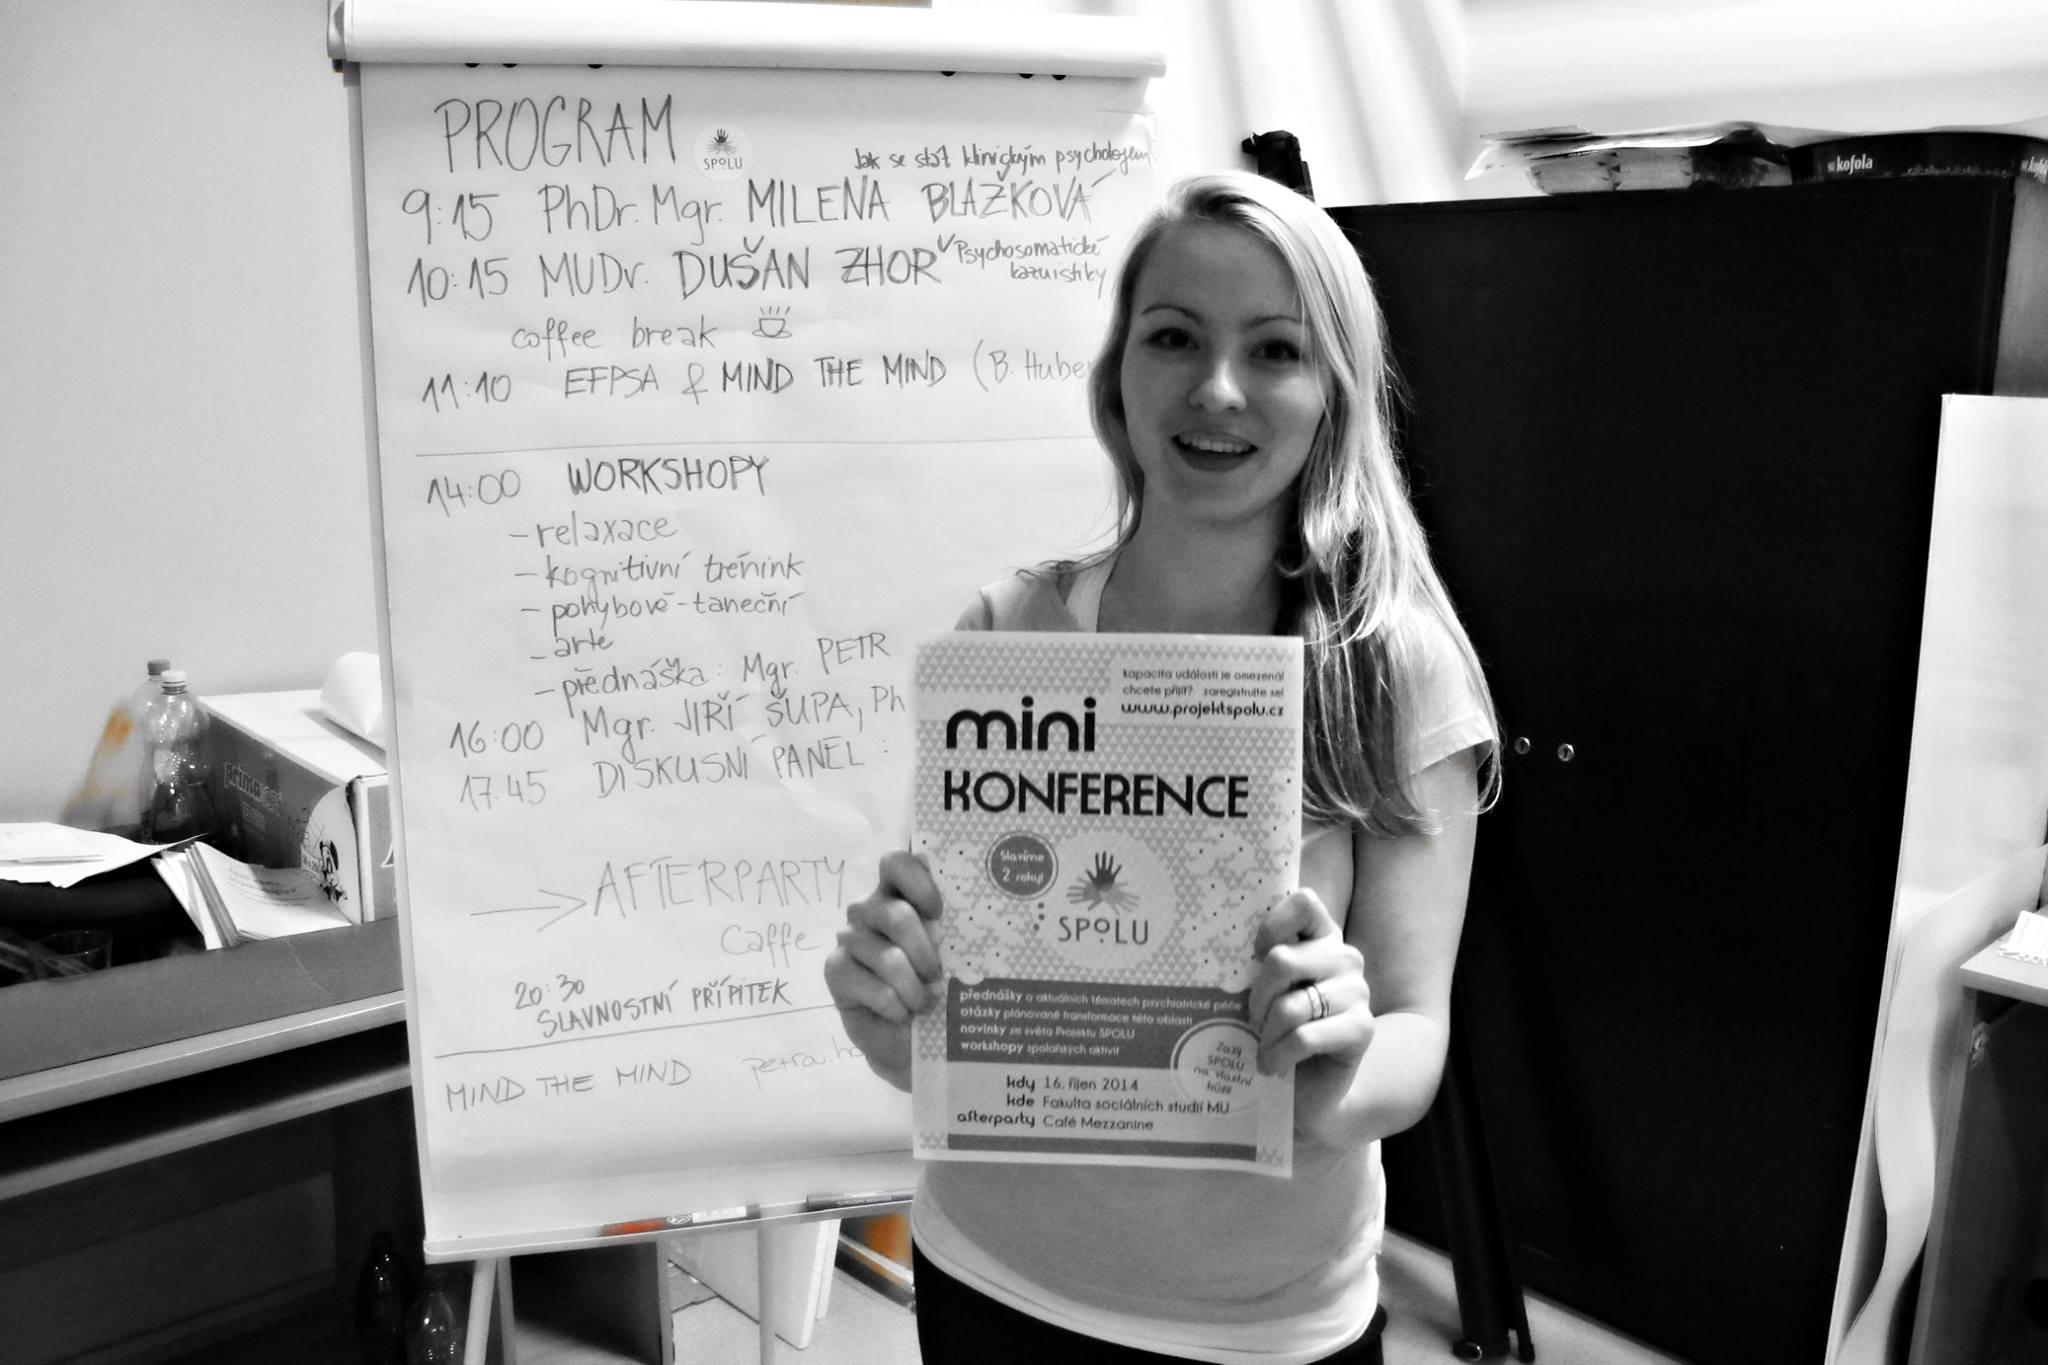 PROGRAM
SPOLU
Jak se stát klinickým psychologem
9:15 PhDr. Mgr. MILENA BLAŽKOVÁ
10:15 MUDr. DUŠAN ZHOR
Psychosomatické
kazuistiky
coffee break
11:10 EFPSA & MIND THE MIND (B. Huber
14:00 WORKSHOPY
- relaxace
- kognitivní trénink
- pohybově-taneční
- arte
- přednáška: Mgr. PETR
16:00 Mgr. JIŘÍ ŠUPA, Ph
17.45 DISKUSNÍ PANEL:
AFTERPARTY
Caffe
20:30
SLAVNOSTNÍ PŘÍPITEK
MIND THE MIND petra.ho
kapacita události je omezená!
chcete přijít? zaregistrujte se!
www.projektspolu.cz
mini
KONFERENCE
Slavíme
2 roky!
SPOLU
přednášky o aktuálních tématech psychiatrické péče
otázky plánované transformace této oblasti
novinky ze světa Projektu SPOLU
workshopy spolařských aktivit
Zažij
SPOLU
na vlastní
kůži
kdy 16. říjen 2014
kde Fakulta sociálních studií MU
afterparty Café Mezzanine
kofola